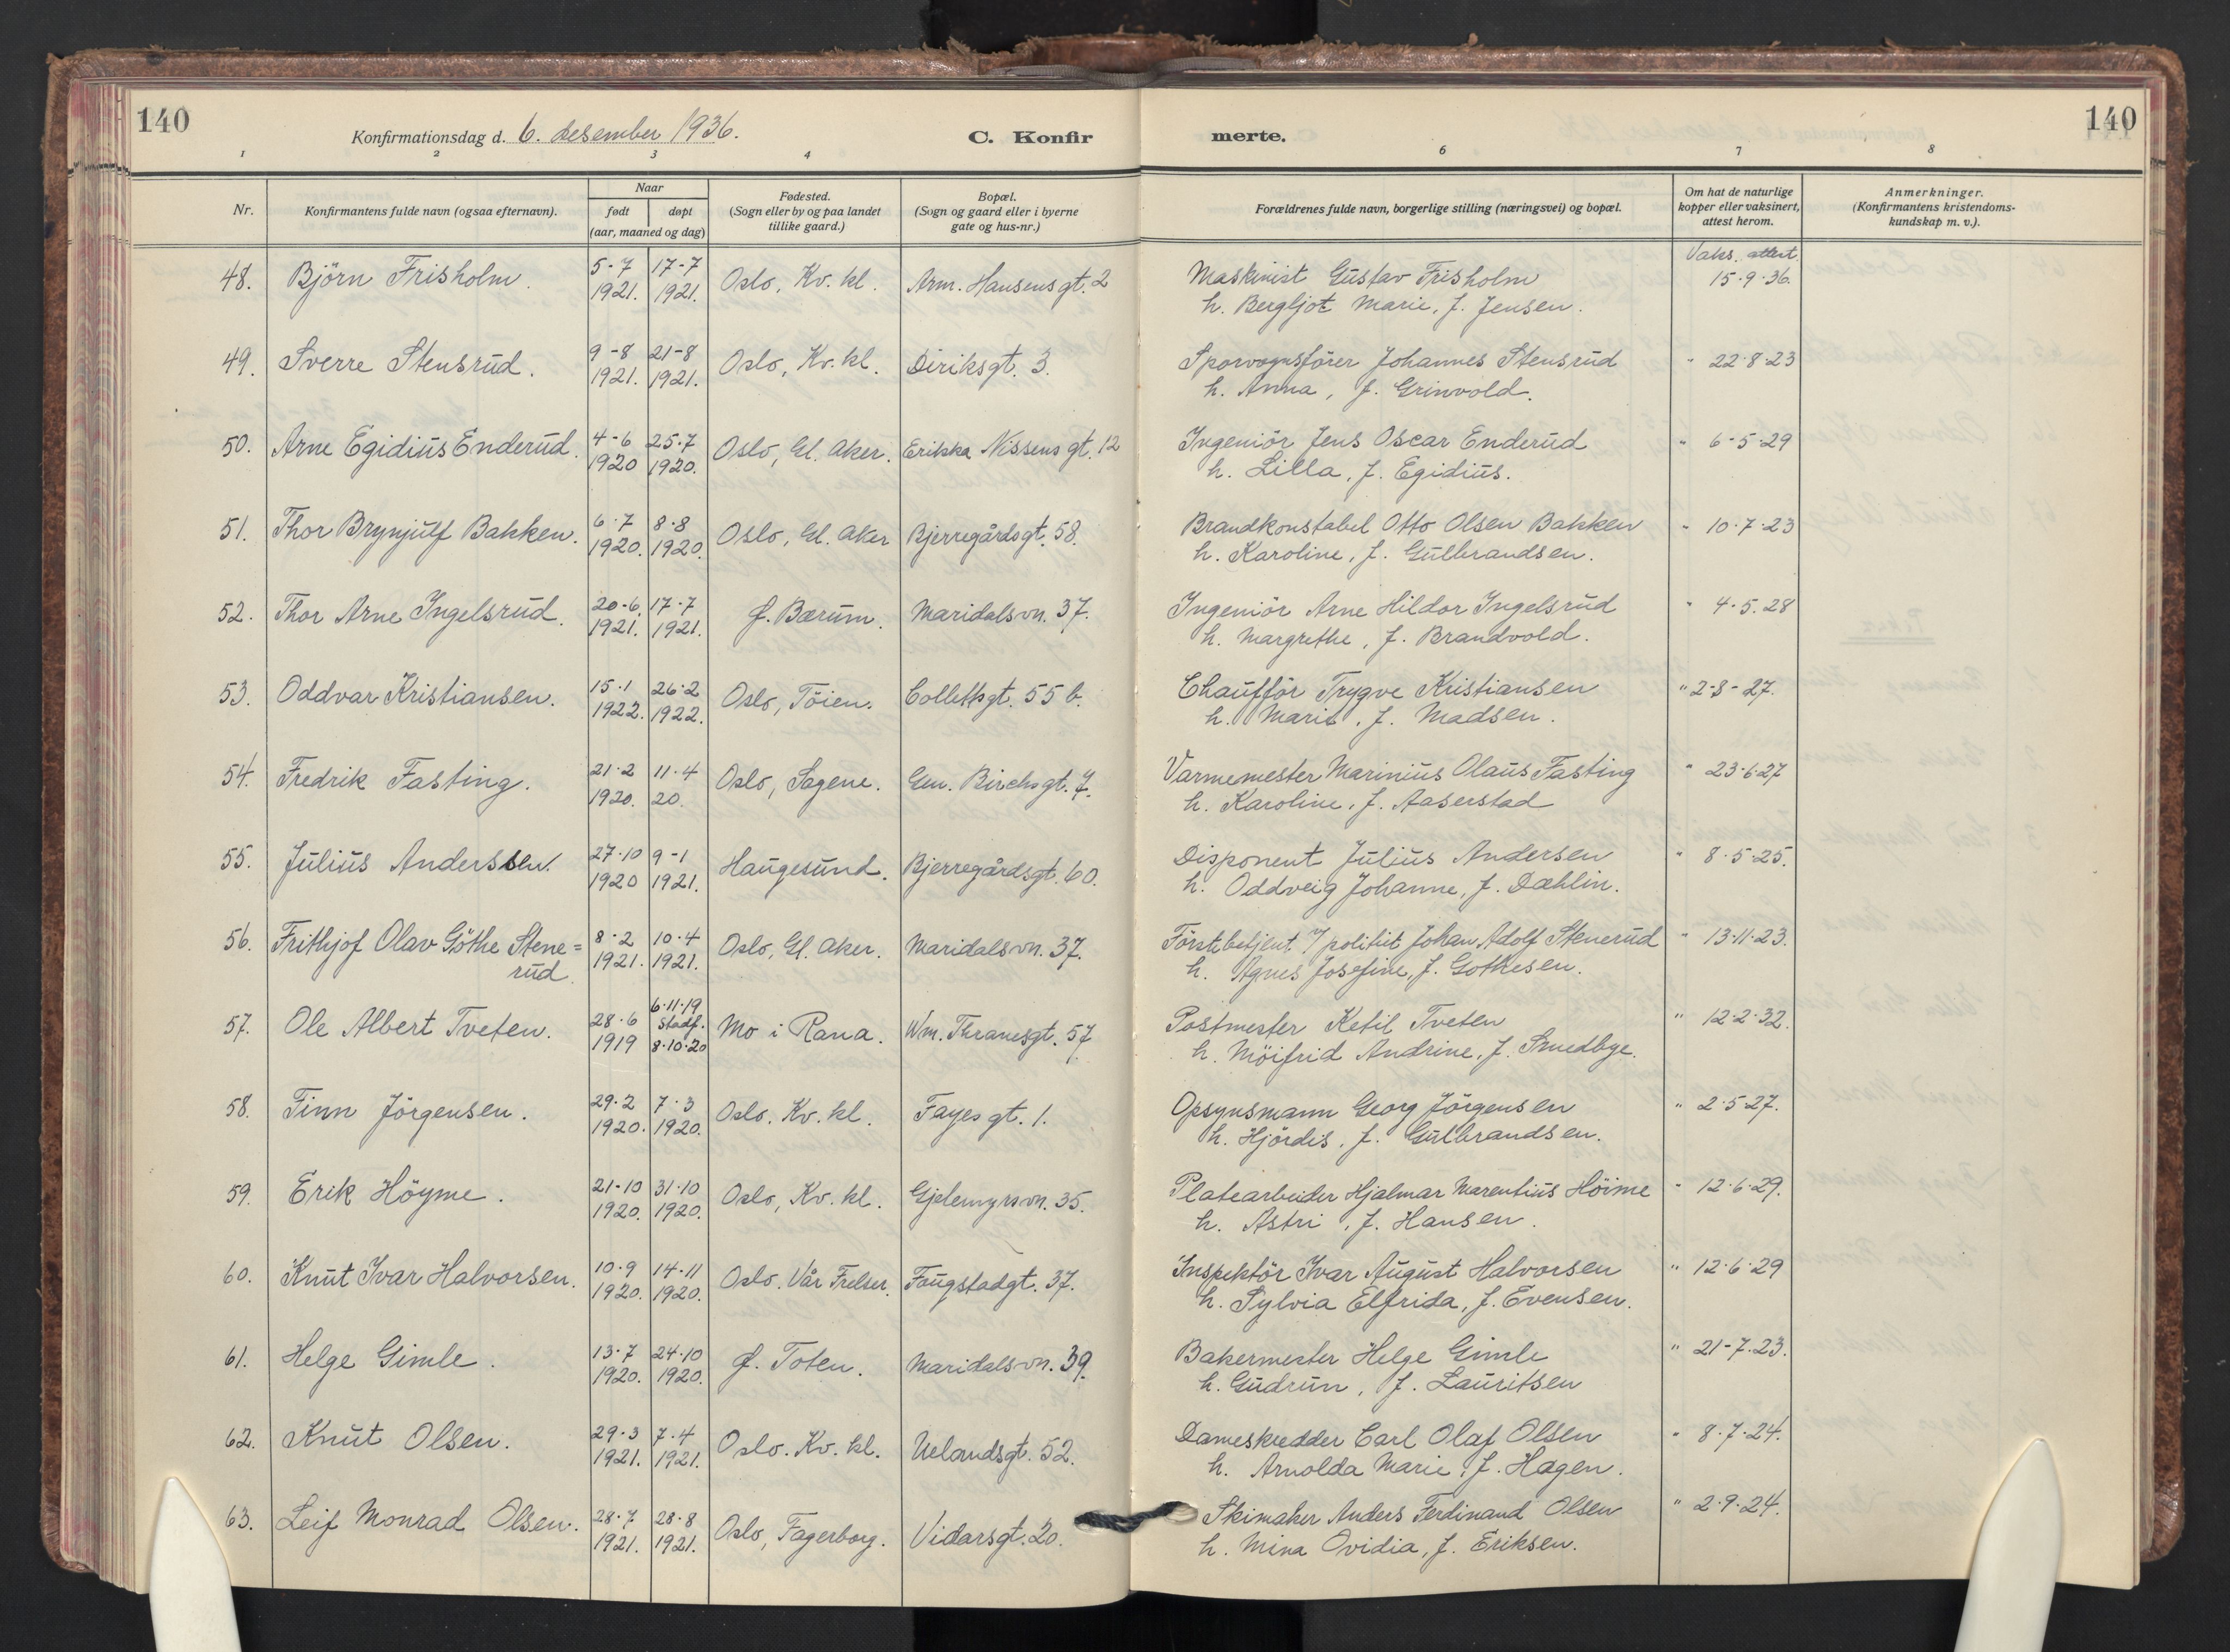 140
Konfirmationsdag d. 6. desember 1936.
C. Konfirmerte.
140
1 2 3 4 6 7 8
Nr.
Konfirmantens fulde navn (ogsaa efternavn).
Naar
født døpt
(aar, maaned og dag)
Fødested.
(Sogn eller by og paa landet
tillike gaard.)
Bopæl.
(Sogn og gaard eller i byerne
gate og hus-nr.)
Forældrenes fulde navn, borgerlige stilling (næringsvei) og bopæl.
Om hat de naturlige
kopper eller vaksinert,
attest herom.
Anmerkninger.
(Konfirmantens kristendoms-
kundskap m. v.).
48. Björn Frisholm. 5-7 1921. 17-7 1921. Oslo, Kv. kl. Arm. Hansens gt. 2 Maskinist Gustav Frisholm Vaks. attest. 15.9.36.
h. Bergljot Marie, f. Jensen.
49. Sverre Stensrud. 9-8 1921. 21-8 1921. Oslo, Kv. kl. Diriksgt. 3. Sporvognsfører Johannes Stensrud " 22.8.23
h. Anna, f. Grinvold.
50. Arne Egidius Enderud. 4-6 1920 25.7 1920. Oslo, Gl. Aker. Erikka Nissens gt. 12 Ingeniör Jens Oscar Enderud " 6-5-29
h. Lilla, f. Egidius.
51. Thor Brynjulf Bakken. 6.7 1920. 8.8 1920. Oslo, Gl. Aker Bjerregårdsgt. 58. Brandkonstabel Otto Olsen Bakken " 10.7.23
h. Karoline, f. Gulbrandsen.
52. Thor Arne Ingelsrud. 20-6 1921. 17.7 1921. Ø. Bærum. Maridalsvn. 37. Ingeniör Arne Hildor Ingelsrud " 4.5.28
h. Margrethe, f. Brandvold.
53. Oddvar Kristiansen. 15.1 1922. 26.2 1922. Oslo, Töien. Collettsgt. 55 b. Chauffför Trygve Kristiansen " 2-8-27.
h. Marie, f. Madsen.
54. Fredrik Fasting. 21.2 1920. 11.4 20. Oslo, Sagene. Gen. Birchsgt. 7. Varmemester Marinius Olaus Fasting " 23.6.27
h. Karoline, f. Aaserstad
55. Julius Anderssen. 27.10 1920 9-1 1921. Haugesund. Bjerregårdsgt. 60. Disponent Julius Andersen " 8.5.25.
h. Oddveig Johanne, f. Dæhlin.
56. Frithjof Olav Göthe Stene= 8.2 1921. 10.4 1921. Oslo, Gl. Aker. Maridalsvn. 37. Förstebetjent i politiet Johan Adolf Stenerud " 13.11.23.
rud. h. Agnes Josefine, f. Gothesen.
57. Ole Albert Tveten. 28.6 1919 6.11.19 Stadf. 8.10.20 Mo i Rana. Wm. Thranesgt. 57 Postmester Ketil Tveten " 12.2.32.
h. Möifrid Andrine, f. Smedbye.
58. Finn Jörgensen. 29.2 1920. 7.3 1920. Oslo. Kv. kl. Fayes gt. 1. Opsynsmann Georg Jörgensen " 2.5.27.
h. Hjördis, f. Gulbrandsen.
59. Erik Höyme. 21-10 1920. 31.10 1920. Oslo, Kv. kl. Gjetemyrsvn. 35. Platearbeider Hjalmar Marentius Höime " 12.6.29.
h. Astri, f. Hansen.
60. Knut Ivar Halvorsen. 10.9 1920. 14.11 1920. Oslo. Vår Frelser. Faugstadgt. 37. Inspektör Ivar August Halvorsen " 12.6.29
h. Sylvia Elfrida, f. Evensen.
61. Helge Gimle. 13.7 1920. 24.10 1920. Ø. Toten. Maridalsvn. 39. Bakermester Helge Gimle " 21-7.23.
h. Gudrun, f. Lauritsen
62. Knut Olsen. 29.3 1921. 7.4 1921. Oslo. Kv. kl. Uelandsgt. 52. Dameskredder Carl Olaf Olsen " 8.7.24.
h. Arnolda Marie, f. Hagen.
63. Leif Monrad Olsen. 28.7 1921. 28.8 1921. Oslo, Fagerborg. Vidarsgt. 20. Skimaker Anders Ferdinand Olsen " 2.9.24.
h. Mina Ovidia, f. Eriksen.